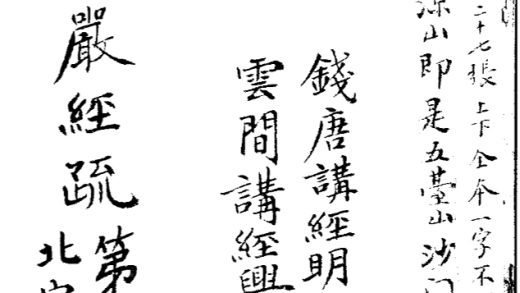 二十七張上下全本一字不
涼山即是五臺山沙門
錢唐講經明
雲間講經興
嚴經疏第
北